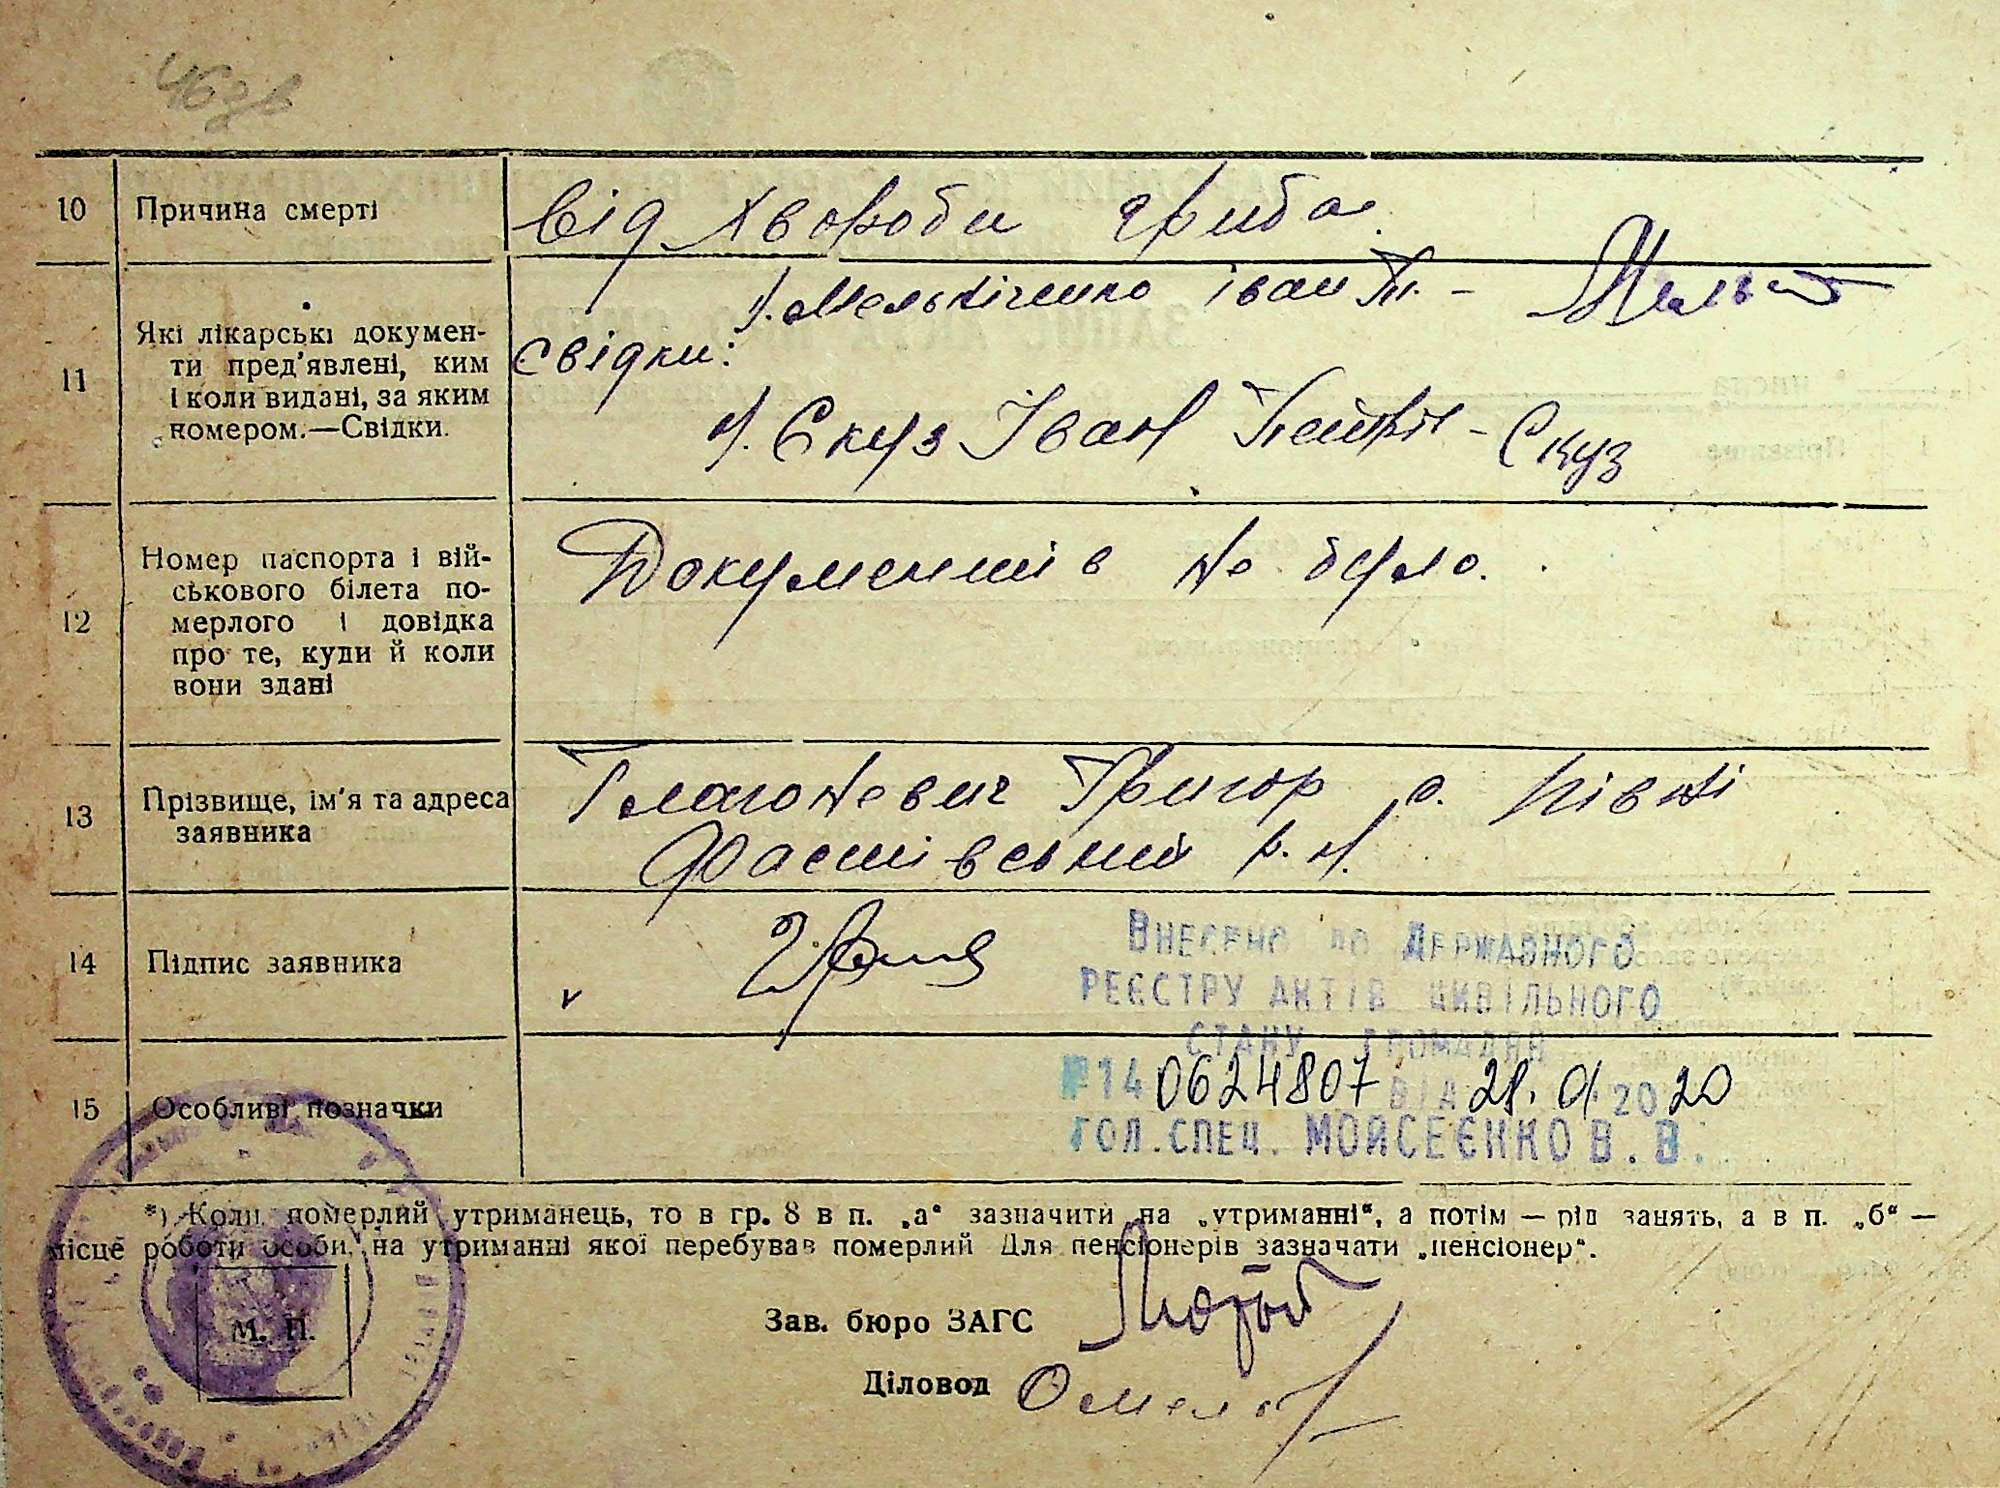 10 Причина смерті
Від хвороби гриба.
11 Які лікарські докумен-
ти пред'явлені, ким
і коли видані, за яким
номером.—Свідки.
іван П. -
Свідки:
Скуз Іван - Скуз
12 Номер паспорта і вій-
ськового білета по-
мерлого і довідка
про те, куди й коли
вони здані
Документів не було.
13 Прізвище, ім'я та адреса
заявника
Григор с. Півні
Фастівський р. н.
14 Підпис заявника
Внесено до Державного
реєстру актів цивільного
стану громадян
15 Особливі позначки
№14 0624807 від 28. 01 2020
гол.спец. Мойсеєнко В. В.
*) Коли померлий утриманець, то в гр. 8 в п. „а“ зазначити на „утриманні“, а потім — рід занять, а в п. „б“ —
місце роботи особи, на утриманні якої перебував померлий Для пенсіонерів зазначати „пенсіонер“.
М. П.
Зав. бюро ЗАГС
Діловод